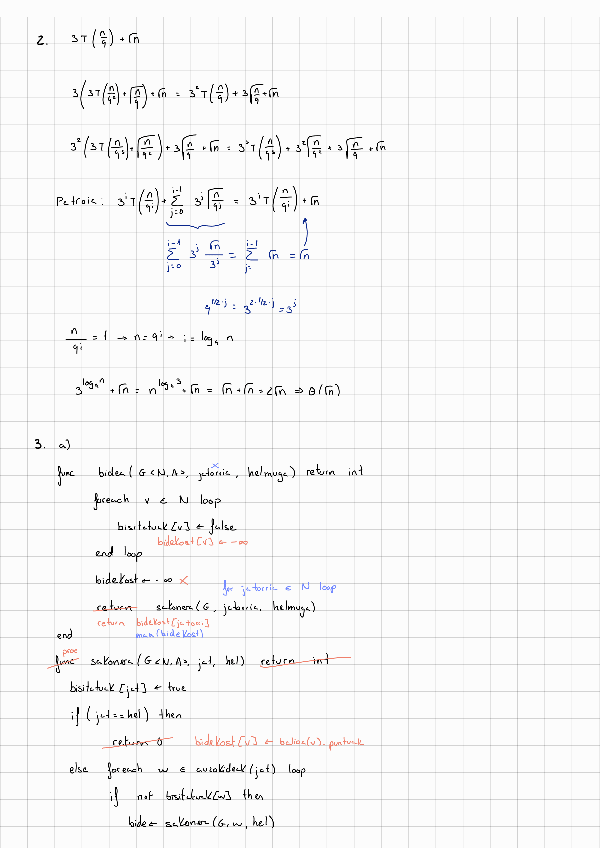 2. 3T(n/9) + √n
3(3T(n/9²) + √(n/9)) + √n = 3²T(n/9²) + 3√(n/9) + √n
3²(3T(n/9³) + √(n/9²)) + 3√(n/9) + √n = 3³T(n/9³) + 3²√(n/9²) + 3√(n/9) + √n
Patroia: 3^i T(n/9^i) + Σ_{j=0}^{i-1} 3^j √(n/9^j) = 3^i T(n/9^i) + √n
Σ_{j=0}^{i-1} 3^j √n/3^j = Σ_{j=}^{i-1} √n = √n
9^{1/2·j} = 3^{2·1/2·j} = 3^j
n/9^i = 1 → n = 9^i → i = log₉ n
3^{log₉ n} + √n = n^{log₉ 3} + √n = √n + √n = 2√n ⇒ θ(√n)
3. a)
func bidea(G<N,A>, jatorria, helmuga) return int
foreach v ∈ N loop
bisitatuak[v] ← false
bidekost[v] ← -∞
end loop
bidekost ← -∞ ×
for jatorria ∈ N loop
return sakonera(G, jatorria, helmuga)
return bidekost[jatorri]
end max(bidekost)
proc
func sakonera(G<N,A>, jat, hel) return int
bisitatuak[jat] ← true
if (jat==hel) then
return 0 bidekost[v] ← balioa(v).puntuak
else foreach w ∈ auzokideak(jat) loop
if not bisitatuak[w] then
bide ← sakonera(G, w, hel)